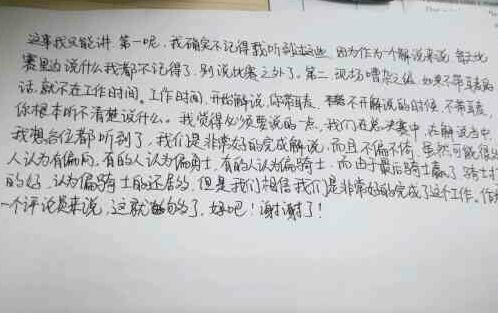 这事我只能讲 第一呢,我确实不记得我听到过这些,因为作为一个解说来说 每次比
赛里边说什么我都不记得了,别说比赛之外了。第二 现场嘈杂之极 如果不带耳麦的
话,就不在工作时间。工作时间,开始解说,你带耳麦,不开解说的时候,不带耳麦,
你根本听不清楚说什么。我觉得必须要说的一点,我们在总决赛中,在解说当中
我想各位都听到了,我们是非常好的完成解说,而且不偏不倚,虽然可能很多
人认为有偏向,有的人认为偏勇士,有的人认为偏骑士,而由于最后骑士赢了 骑士打
的好,认为偏骑士的还居多,但是我们相信我们是非常好的完成了这个工作。作为
一个评论员来说,这就够了,好吧!谢谢了!